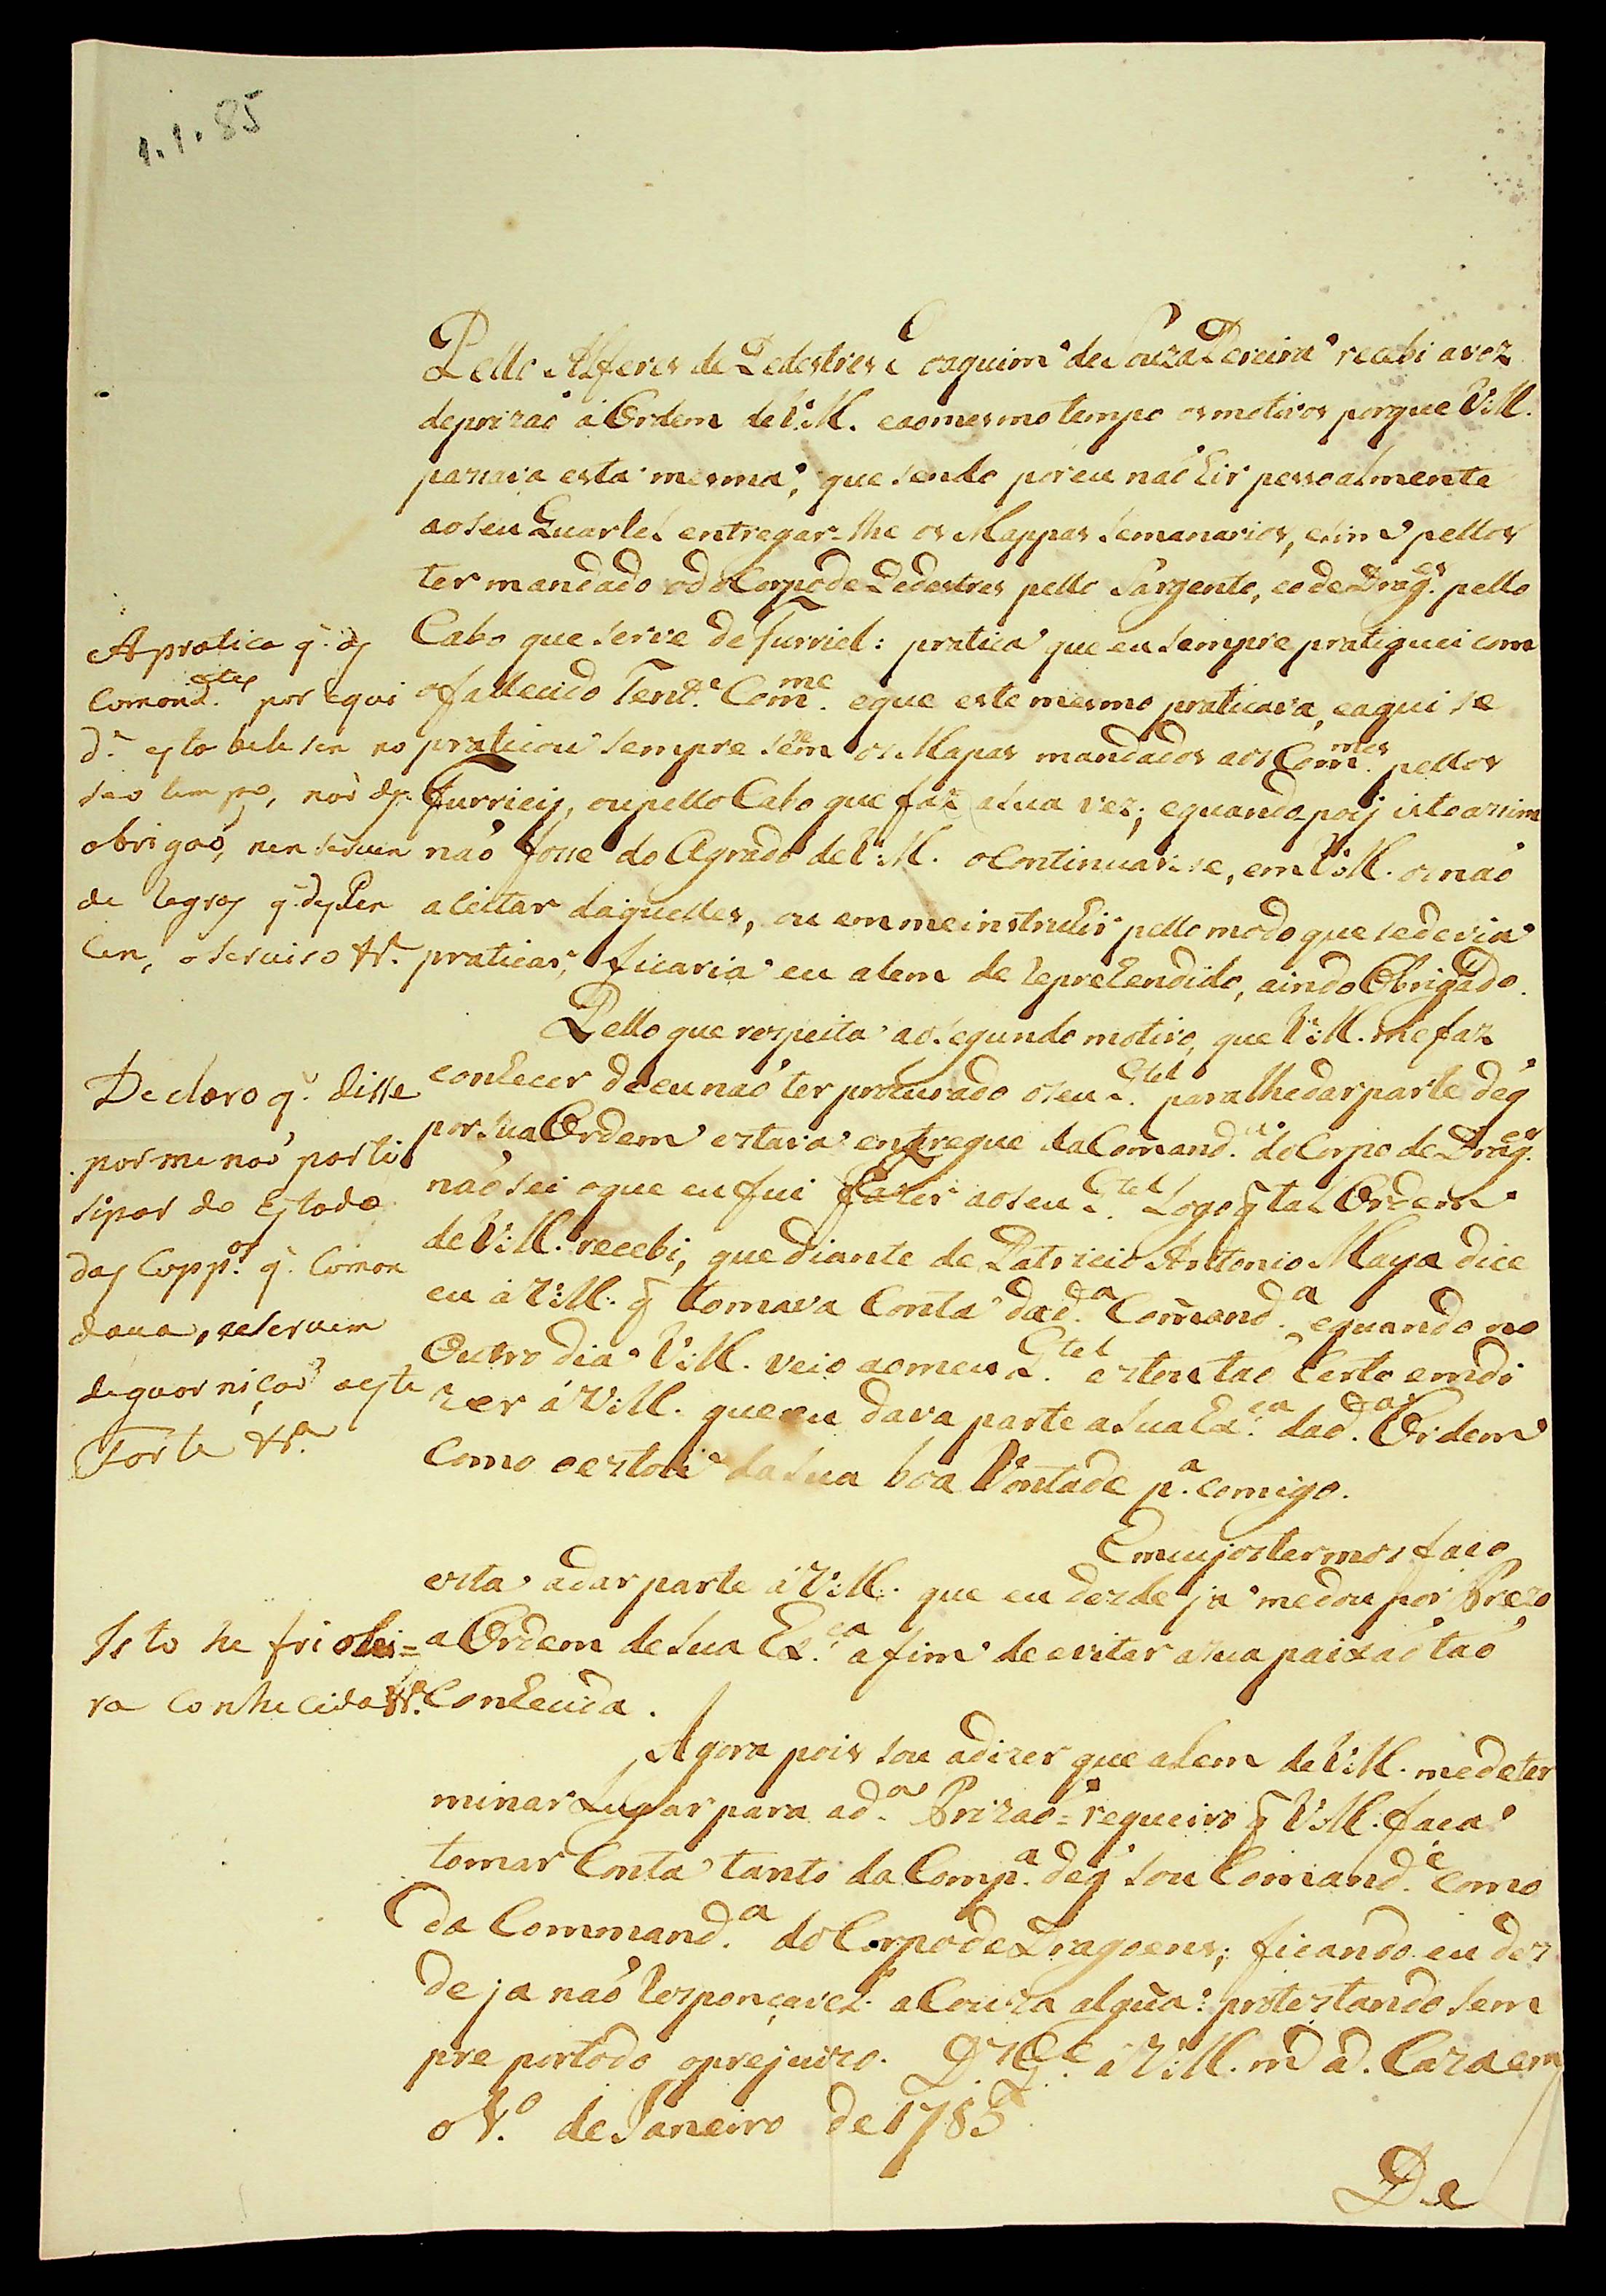 1.1.85
Pello Alferes de Pedestres Joaquim de Souza Pereira recebi a voz
deprizaõ á Ordem de V.M. eaomesmo tempo osmotivos porque V.M.
passava esta mesma; que sendo por eu naõ hir pessoalmente
aoseu Quartel entregar-lhe os Mappas Semanarios, esim pellos
ter mandado odoCorpodePedestres pello Sargento, eode Drag.es pello
Cabo que serve de Furriel: pratica que eu sempre pratiquei com
ofallecido Ten.te Com.me eque este mesmo praticava, eaqui se
praticou sempre serem os Mapas mandados aos Com.mes pellos
Furrieis, oupello Cabo que faz asua vez; equando pois isto assim
naõ fosse do Agrado de V.M. oContinuarse, em V.M. os naõ
aceitar daquelles, ou em meinstruhir pello modo que sedevia
praticar, ficaria eu alem de reprehendido, aindo Obrigado.
Pello que respeita aosegundo motivo, que V.M. me faz
conhecer deeu naõ ter procurado oseu Q.tel para lhedar parte deq̃
por sua Ordem estava entregue da Comand.a do Corpo de Drag.es
naõ sei oque eu fui fazer aoseu Q.tel Logo q̃ tal Ordem
de V.M. recebi, que diante de Patricio Antonio Maya dice
eu á V.M. q̃ tomava Conta da d.a Comand.a equando no
Outro dia V.M. veio aomeu Q.tel estou taõ Certo emdi
zer á V.M. queeu dava parte asua Ex.ca da d.a Ordem
Como oestou da sua boa Vontade p.a comigo.
Emcujostermos faço
esta adar parte á V.M. que eu desde ja medou por Prezo
a Ordem de sua Ex.ca afim de evitar asua paixaõ taõ
Conhecida.
Agora pois sou adizer que alem de V.M. medeter
minar Lugar para ad.a Prizaõ = requeiro q̃ V.M. faça
tomar Conta tanto da Comp.a deq̃ sou Comand.e como
da Command.a do CorpodeDragoens; ficando eu des
de ja naõ responçavel a Couza algũa: protestando sem
pre portodo oprejuizo. D.s G.e á V.M. m.s a.s Caza em
o 1.o de Janeiro de 1785
De
A pratica q. os
Comond.tes por aqui
d.
seo tempo, não
obrigaõ, nem servem
de regras q.
o serviso &.a
Declaro q. disse
por me naõ parti
sipar do Estado
das Copp.as q. Comon
dava, e
deguarniçaõ aeste
Forte &.a
Isto he friolei=
ra Conhecida &.a